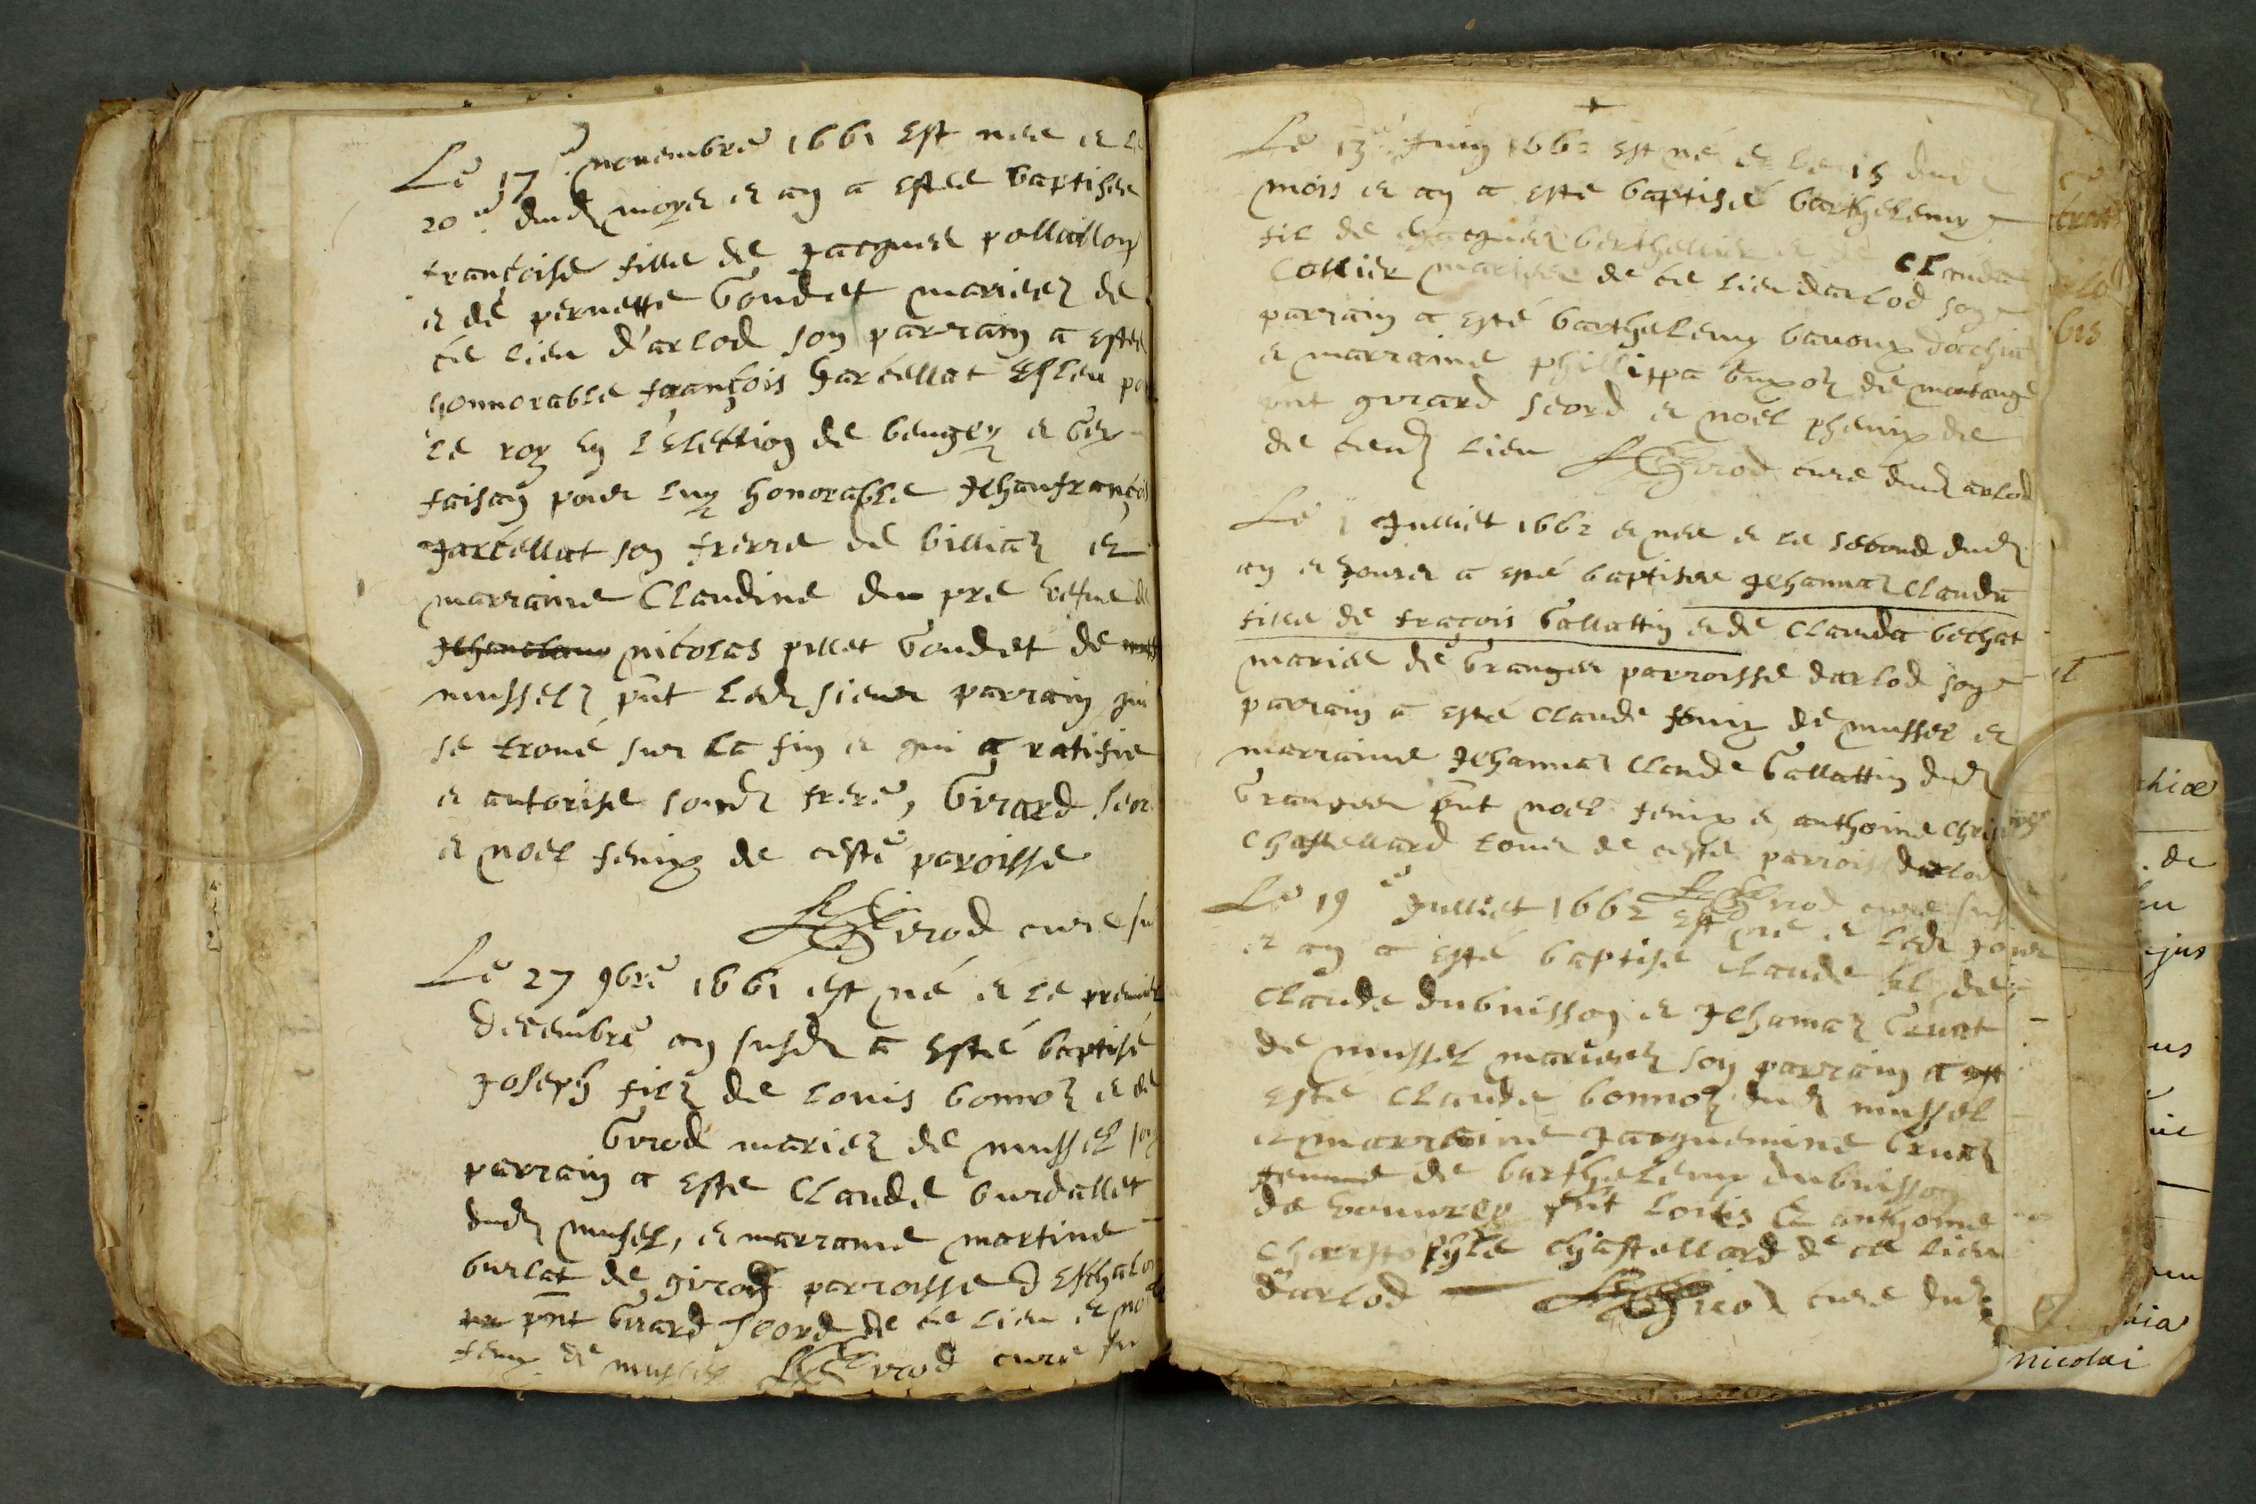 Le 17e novembre 1661 est nee et le
20e dud moys et an a estee baptisee
françoise fille de Jacques pollallion
et de pernette Goudet mariees de
ce lieu d'arlod son parrain a estee
honnorable françois Jarcellat esleu po
le roy en l'elettion de beugey et Gex
faisan pour luy honorable Jehanfrançois
Jarcellat son frerre de billiaz et
marraine Claudine du pre vefve de
nicolas pillet Goudet de
mussels pnt led sieur parrain qui
se trouve sur la fin et qui a ratifie
et autorise soud frere, Girard seor
et noel fenix de ceste paroisse
Girod cure su
Le 27 9bre 1661 est né et le premier
decembre an susd a esté baptisé
Joseph filz de Louis bonnoz et de
Girod mariez de mussel son
parrain a este Claude burdallet
dud musel, et marrame martine
burlat de giron parroisse d eschalon
pnt Girard seord de ce lieu et noel
fenix de mussel Girod cure su
Le 13e Juin 1662 est né et le 15 dud
mois et an a esté baptisé barthelemy
fil de Jacques berthellier et de Clauda
Collier mariees de ce lieu darlod son
parrain a esté barthelemy bavoux dochia
et marraine phillippa buxoz de montange
pnt girard seord et noel phenix de
de ceud lieu Girod cure dud arlod
Le 1 Julliet 1662 et nee et le second dud
an et jours a esté baptisee Jehannaz Clauda
fille de fraçois Gallattin et de Clauda bechat
mariee de Granges parroisse darlod son
parrain a esté Claude fenix de mussel et
marraine Jehannaz Claude Gallattin dud
Granges pnt noel fenix et anthoine
Chastellard tous de ceste parroisse darlod
Girod cure sus
Le 19e Julliet 1662 est né et led jour
et an a esté baptise Claude fil de
Claude dubuisson et Jehannaz Gruat
de mussel mariees son parrain a
esté Claude bonnoz dud mussel
et marraine Jacquemine Gruaz
femme de barthelemy dubuisson
de vouvrey pnt Louis et anthoine
Charstophle chastellard de ce lieu
darlod Girod cure dud
nicolai